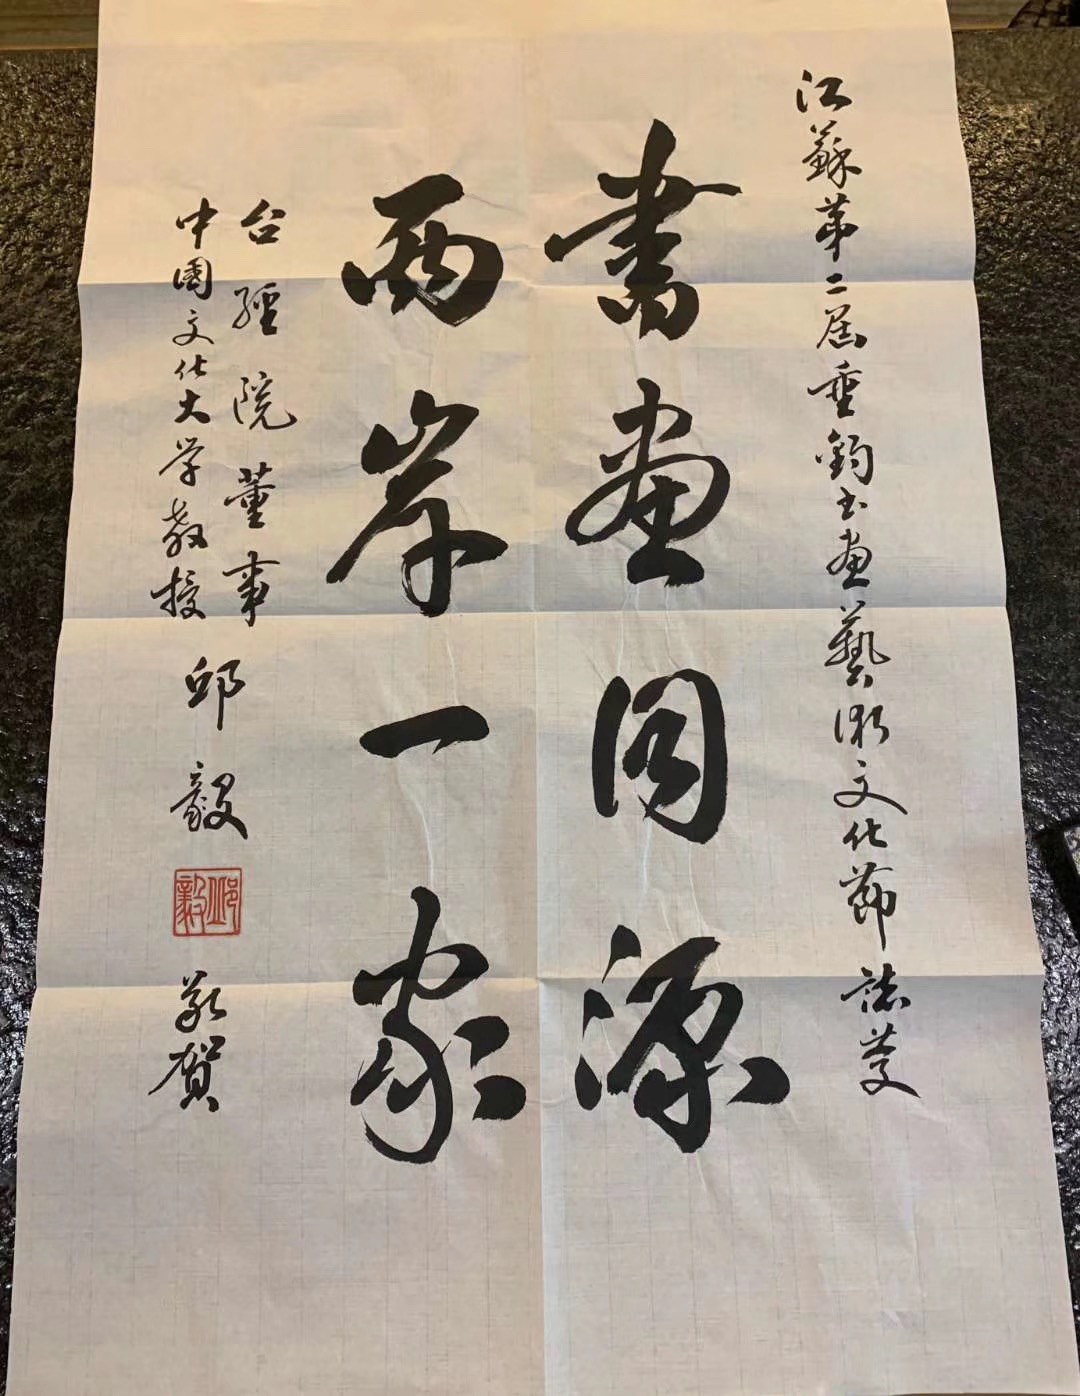 江蘇第二屆垂釣书畫藝術文化節誌慶
書畫同源
兩岸一家
台經院董事
中國文化大学教授
邱毅
邱毅
敬賀